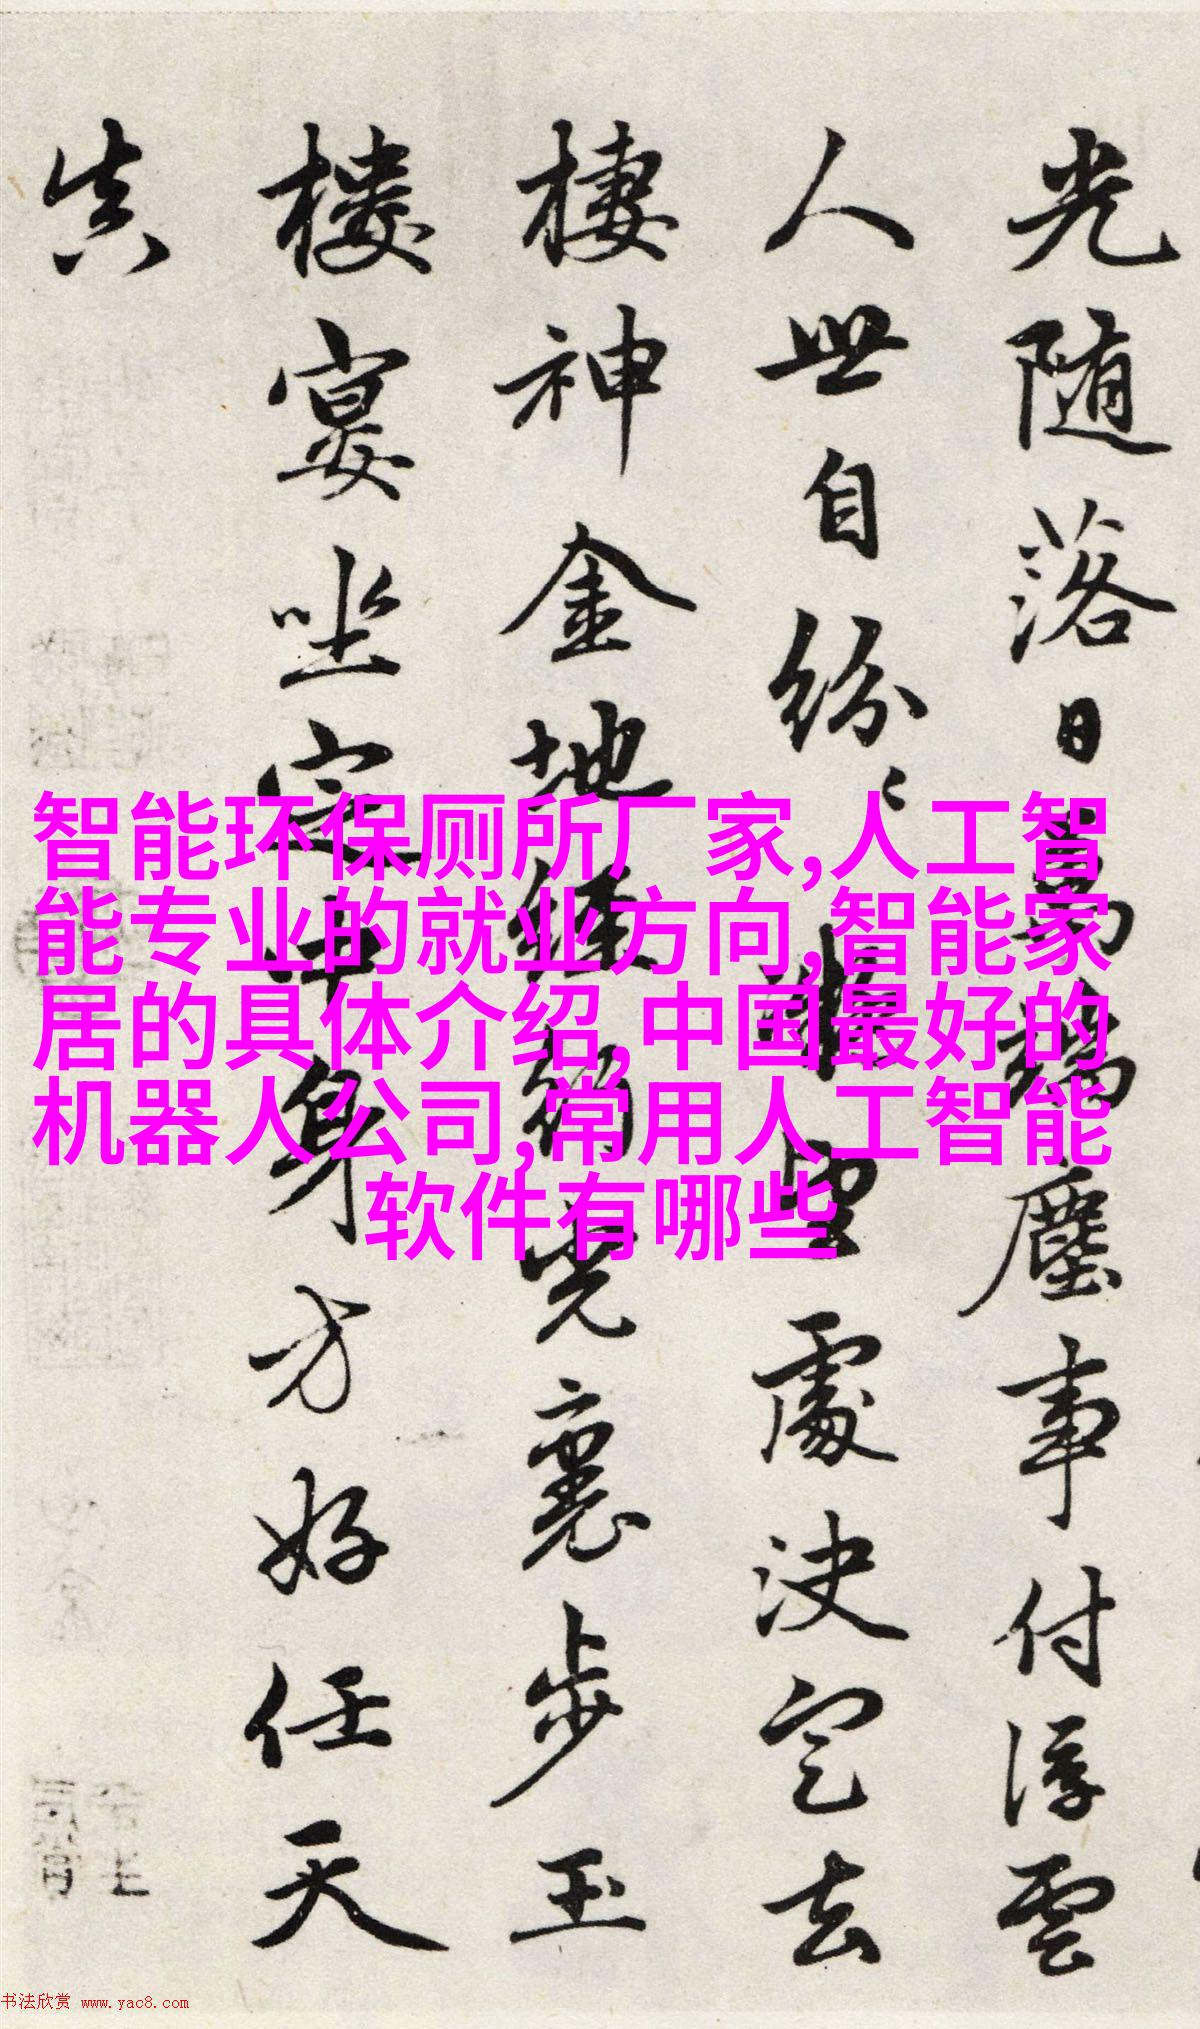 光随落日萬端塵事付浮雲
人世自纷〻望處决定去
棲神金地經裏步玉
樓宴坐定中身方好任天
真
智能环保厕所厂家,人工智
能专业的就业方向,智能家
居的具体介绍,中国最好的
机器人公司,常用人工智能
软件有哪些
书法欣赏 www.yac8.com